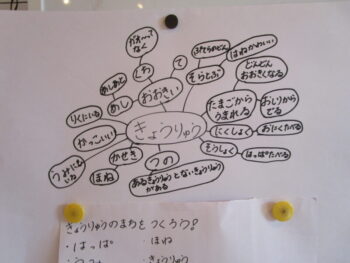 がおーって
なく
しわ
て
ぷてらのどん
そらとぶ
はねかわいい
どんどん
おおきくなる
あしあと
あし
おおきい
たまごから
うまれる
おしりから
でる
りくにいる
きょうりゅう
にくしょく
おにくたべる
かっこいい
かせき
つの
そうしょく
はっぱたべる
ほね
あるきょうりゅうとないきょうりゅう
がある
きょうりゅうのまちをつくろう!
・はっぱ
・ほね
・きょうりゅう